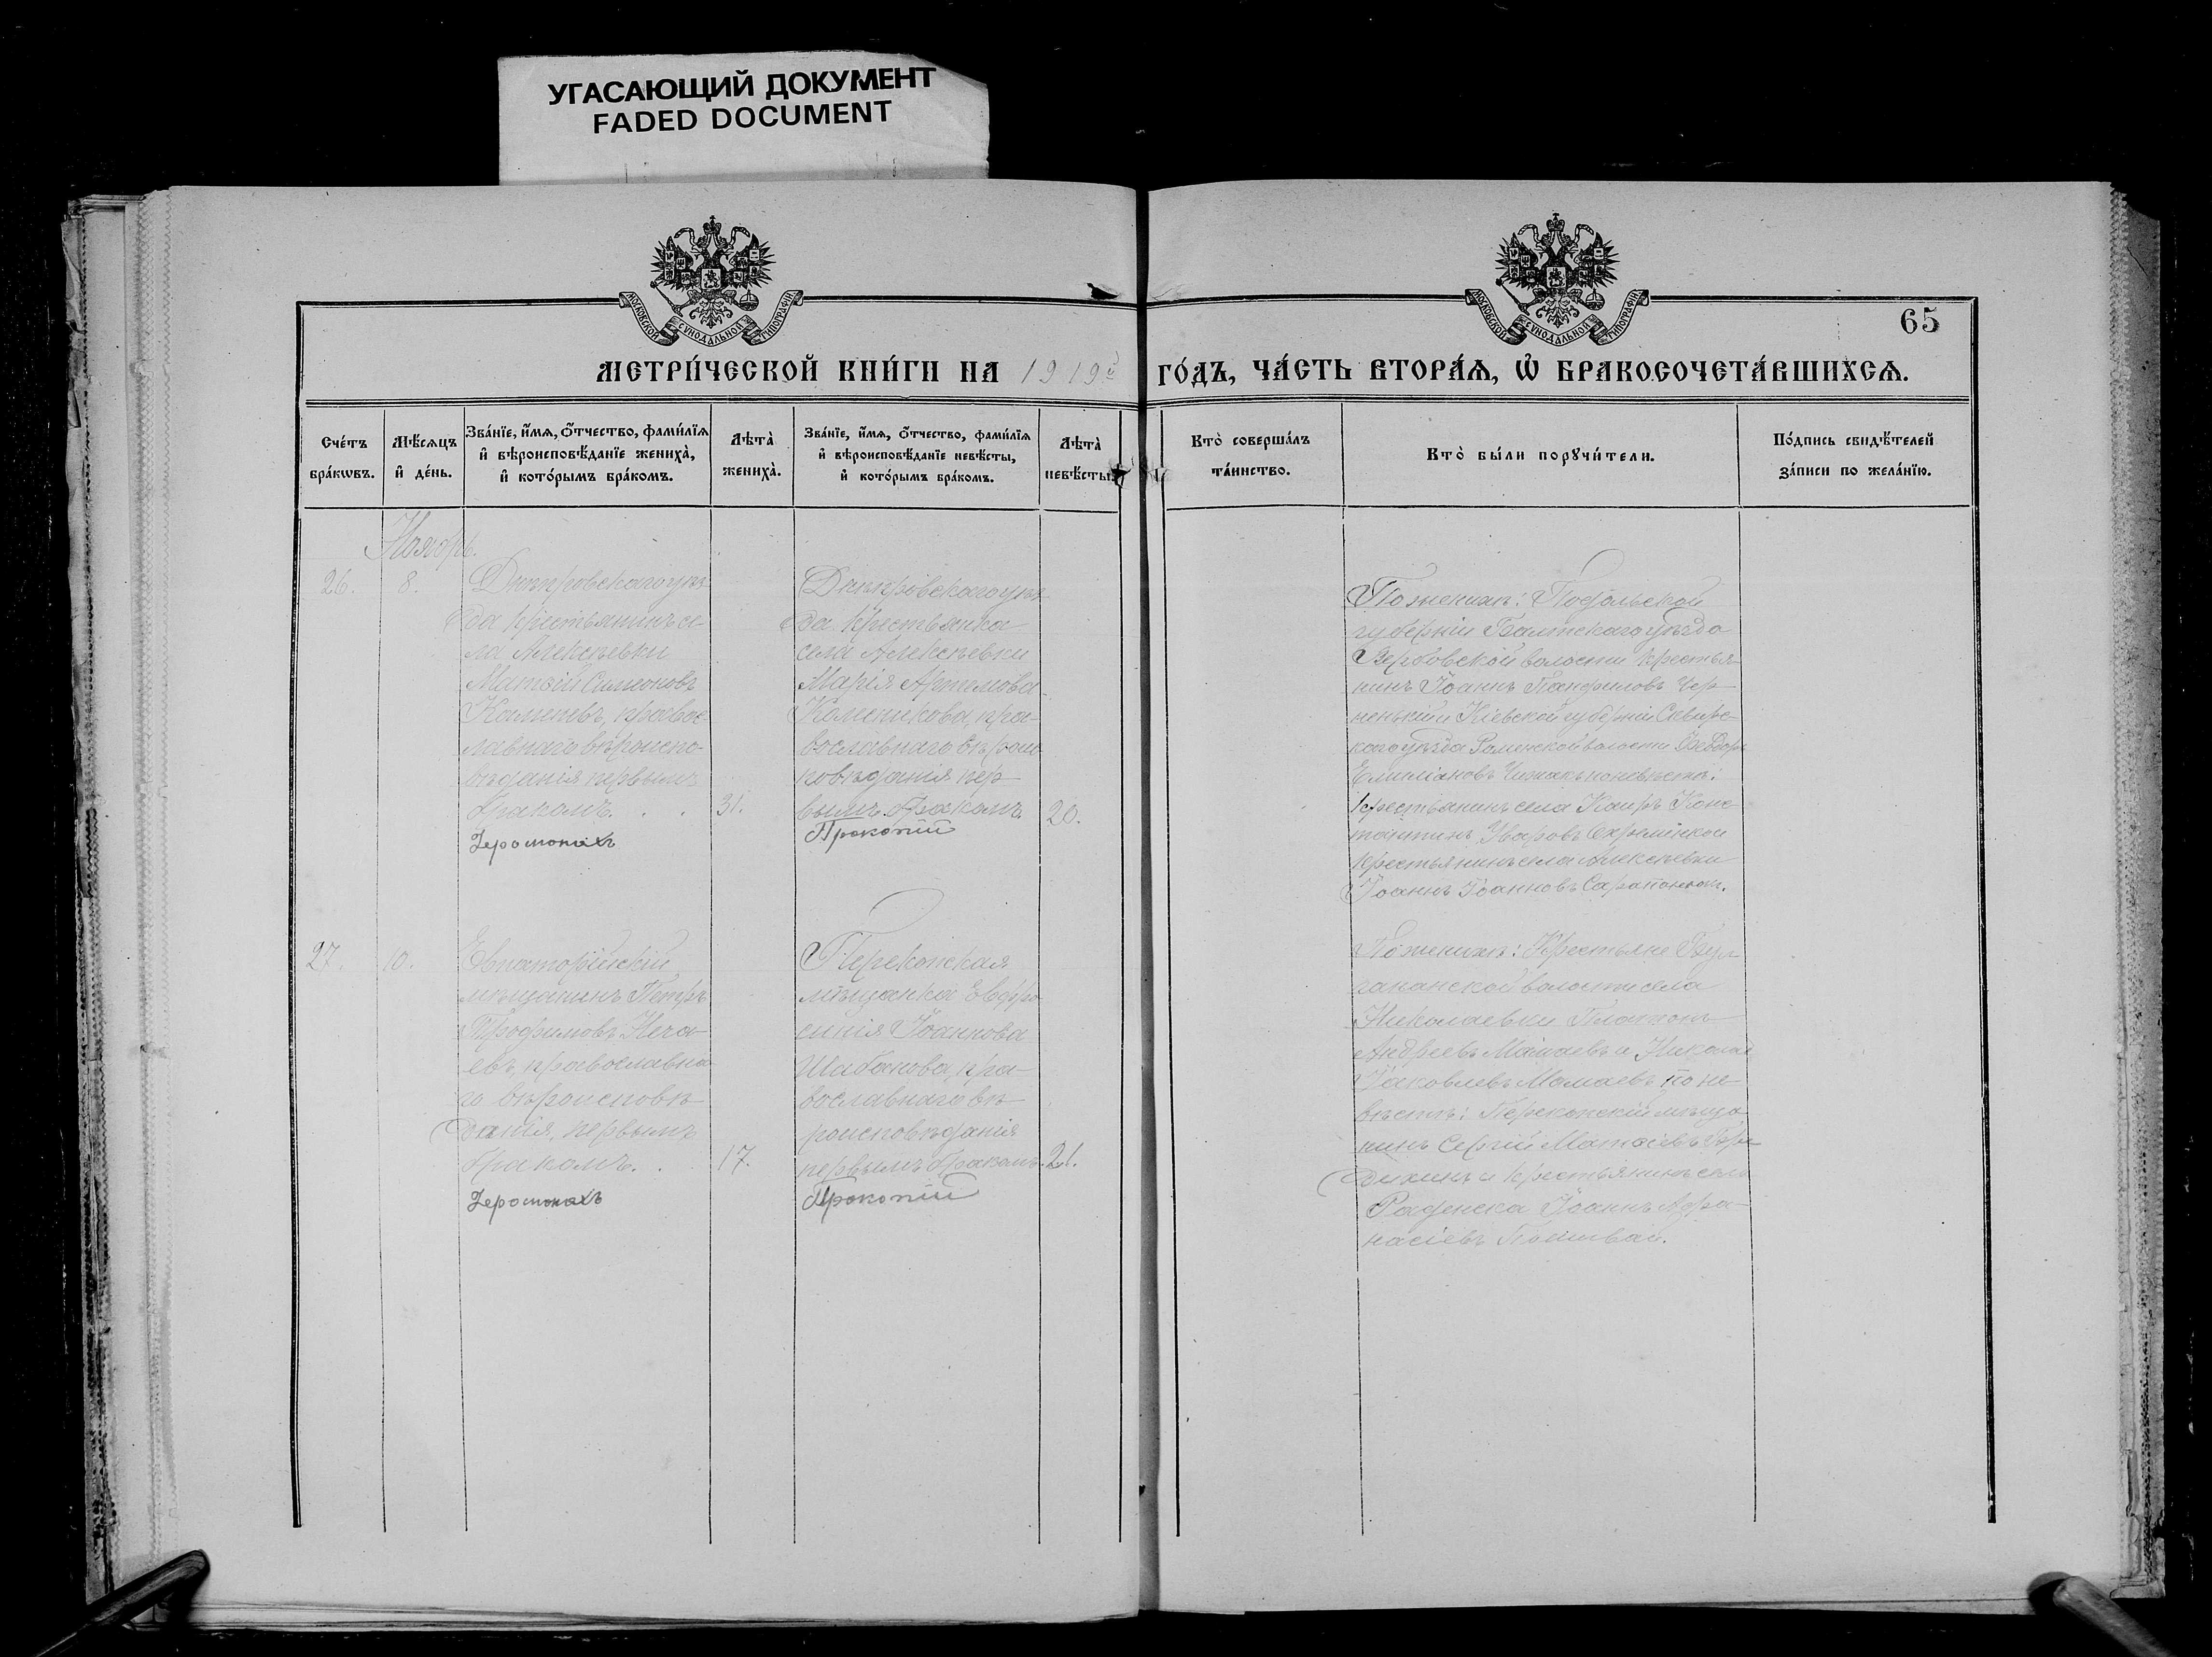 УГАСАЮЩИЙ ДОКУМЕНТ
FADED DOCUMENT
МОСКОВСКОЙ СѴНОДАЛЬНОЙ ТИПОГРАФІИ
МОСКОВСКОЙ СѴНОДАЛЬНОЙ ТИПОГРАФІИ
65
МЕТРИ́ЧЕСКОЙ КНИ́ГИ НА 1919й ГО́ДЪ, ЧА́СТЬ ВТОРА́Ѧ, Ѡ҆ БРАКОСОЧЕТА́ВШИХСѦ.
Сче́тъ
бра́кѡвъ.
Мѣ́сѧцъ
и҆ де́нь.
Зва́нїе, и҆́мѧ, ѻ҆́тчество, фами́лїѧ
и҆ вѣроисповѣ́данїе жениха̀,
и҆ кото́рымъ бра́комъ.
Лѣта̀
жениха̀.
Зва́нїе, и҆́мѧ, ѻ҆́тчество, фами́лїѧ
и҆ вѣроисповѣ́данїе невѣ́сты,
и҆ кото́рымъ бра́комъ.
Лѣта̀
невѣ́сты.
Кто̀ соверша́лъ
та́инство.
Кто̀ бы́ли порꙋчи́тели.
По́дпись свидѣ́телей
за́писи по жела́нїю.
Ноябрь.
26.
8.
Днѣпровскаго уѣз-
да крестьянинъ се-
ла Алексѣевки
Матѳій Симеоновъ
правос-
лавнаго вѣроиспо-
вѣданія первымъ
бракомъ. . .
31.
Іеромонахъ
Днѣпровскаго уѣз-
да крестьянка
села Алексѣевки
Марія Артемова
Колесникова, пра-
вославнаго вѣроис
повѣданія пер-
вымъ бракомъ.
20.
Прокопій
По женихѣ: Подольской
губерніи Балтскаго уѣзда
Вербовской волости крестья-
нинъ Іоаннъ Панфиловъ Чер-
ненькій и Кіевской губерніи Сквирс-
каго уѣзда волости Ѳеодоръ
Емиліановъ по невѣстѣ:
крестьянинъ села Каиръ Конс-
тантинъ Уваровъ
крестьянинъ села Алексѣевки
Іоаннъ Іоанновъ
27.
10.
Евпаторійскій
мѣщанинъ Петръ
Трофимовъ Неча-
евъ, православна-
го вѣроисповѣ-
данія, первымъ
бракомъ. .
17.
Іеромонахъ
Перекопская
мѣщанка Евфро-
синія Іоаннова
Шабанова, пра-
вославнаго вѣ-
роисповѣданія
первымъ бракомъ.
21.
Прокопій
По женихѣ: Крестьяне
волости села
Николаевки Платонъ
Андреевъ Мамаевъ и Николай
Іаковлевъ Мамаевъ по не-
вѣстѣ: Перекопскій мѣща-
нинъ Сергій Матѳіевъ
и крестьянинъ села
Раденска Іоаннъ Афа-
насіевъ